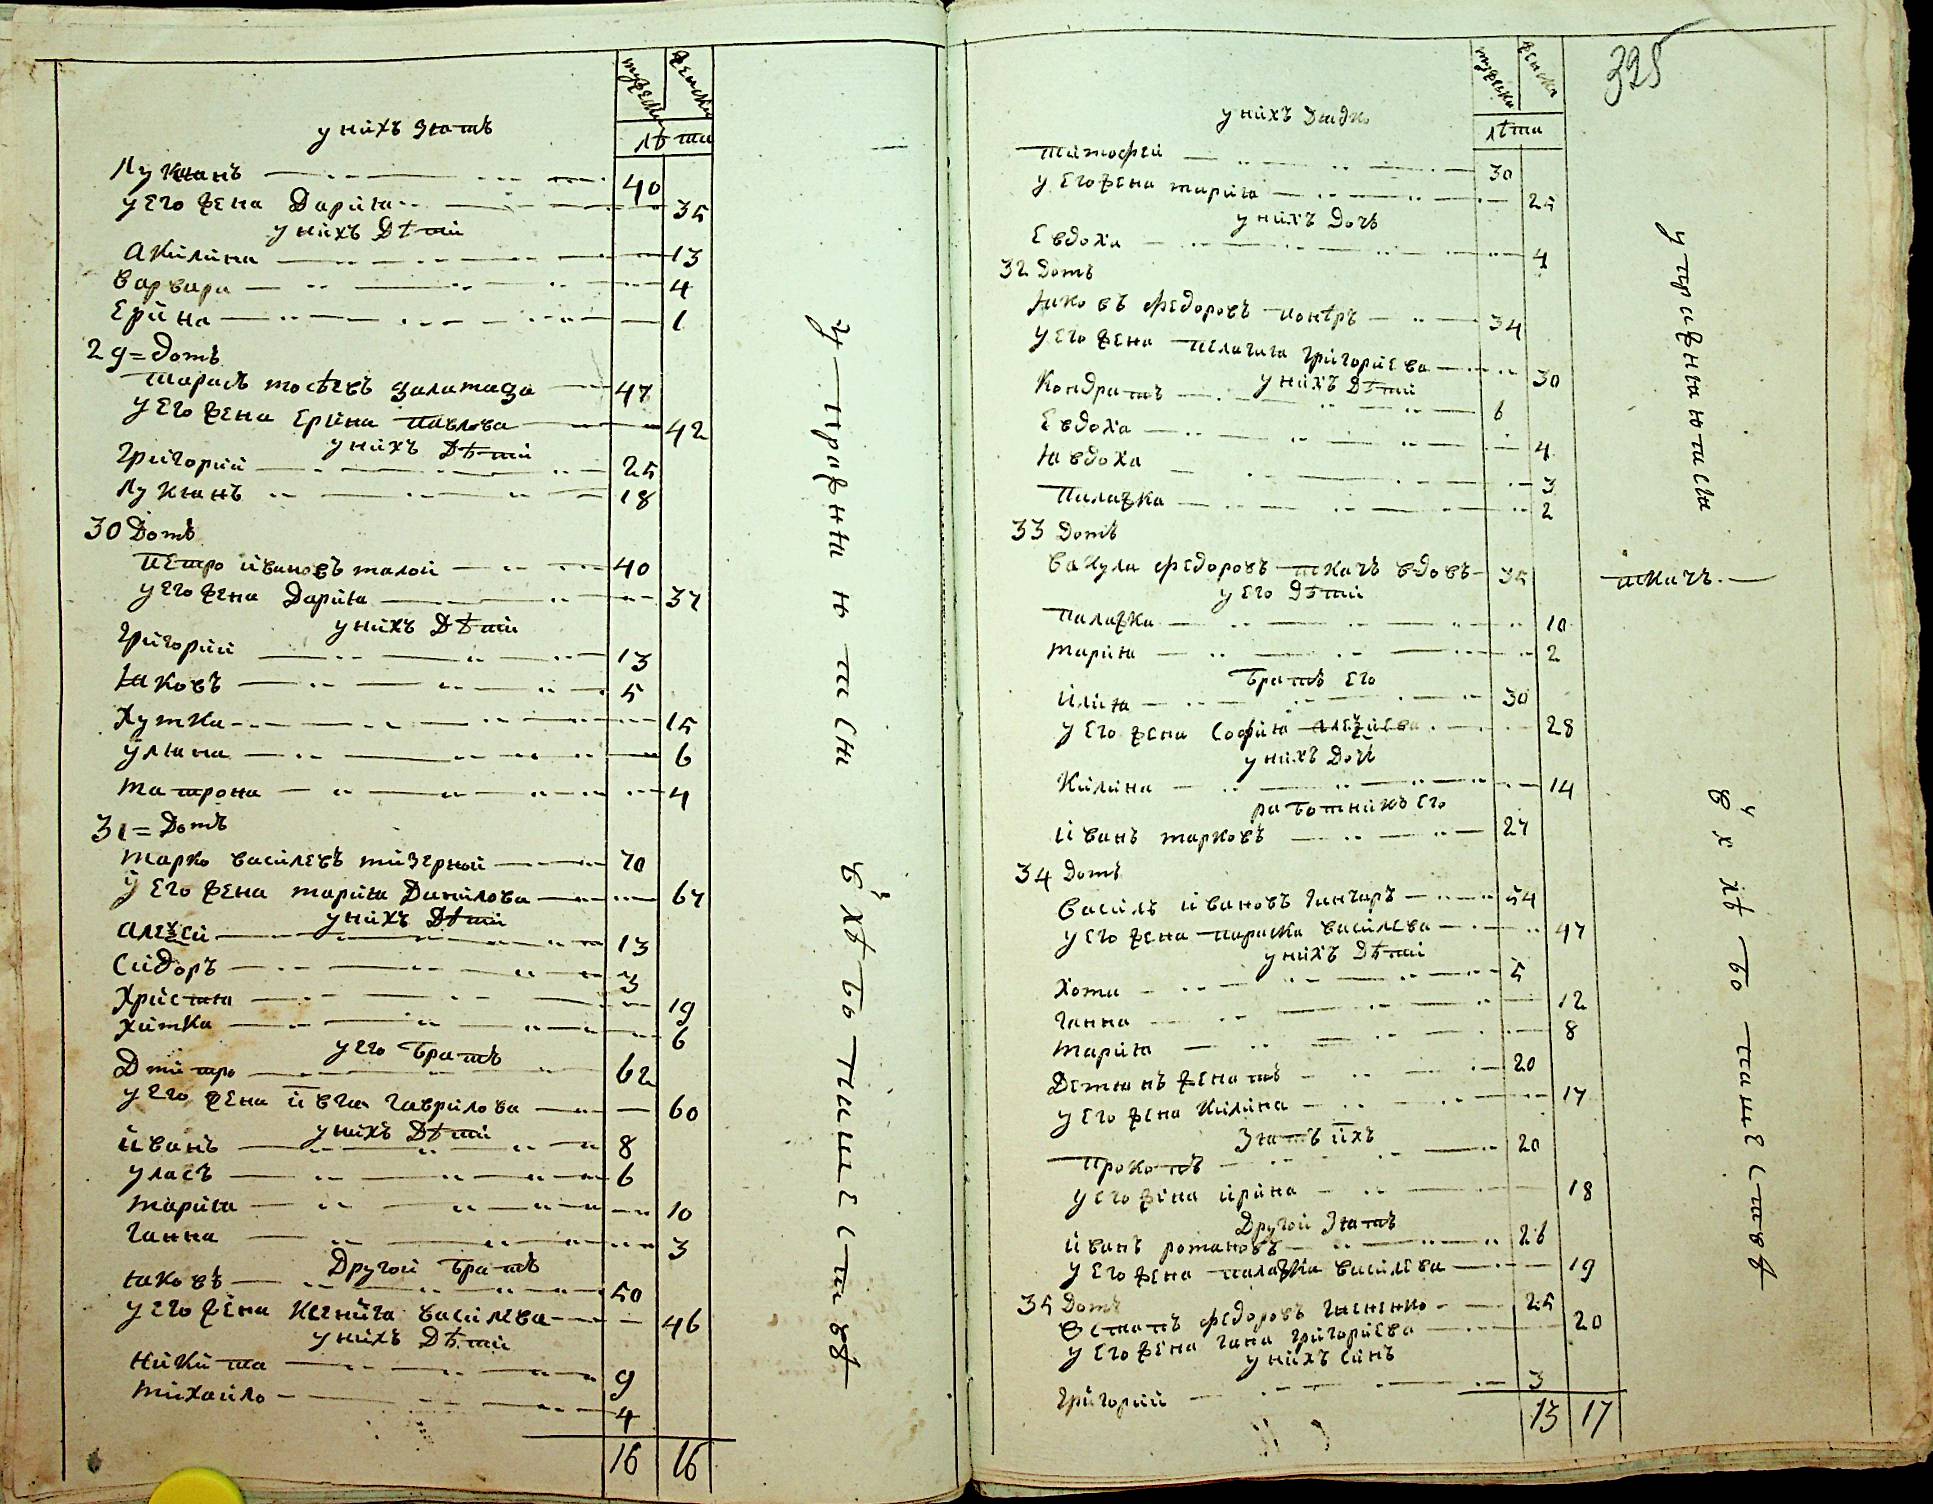 мужески
женски
у нихъ зять
лѣта
Лукиянъ 40
у его жена Дария 35
у нихъ Дѣти
Акилина 13
Варвара 4
Ерина 1
29 = домъ
Тарасъ мосѣевъ 47
у его жена Ерина павлова 42
у нихъ Дѣти
Григорий 25
Лукянъ 18
30 Домъ
Петро ивановъ малой 40
у его жена Дария 37
у нихъ Дѣти
Григорий 13
Яковъ 5
Химка 15
уляна 6
Матрона 4
31 = Домъ
Марко василевъ мизерной 70
у его жена мария Данилова 67
у нихъ Дѣти
Алеѯей 13
Сидоръ 3
Христя 19
химка 6
у его братъ
Дмитро 62
у его жена ивга гаврилова 60
у нихъ Дѣти
иванъ 8
уласъ 6
Мария 10
Ганна 3
Другой братъ
яковъ 50
у его жена василева 46
у нихъ Дѣти
Никита 9
Михайло 4
16 16
325
мужески
женски
лѣта
Тимофей 30
у его жена мария 25
у нихъ Дочь
Евдоха 4
32 Домъ
яковъ федоровъ 34
у его жена пелагия григориева 30
у нихъ Дѣти
Кондратъ 6
Евдоха 4
явдоха 3
Палажка 2
33 Домъ
Вакула федоровъ ткачъ вдовъ 35
ткачъ
у его Дѣти
Палажка 10
Мария 2
братъ его
илия 30
у его жена София алеѯиева 28
у нихъ Дочь
Килина 14
работникъ его
иванъ марковъ 27
34 Домъ
Василь ивановъ ганчаръ 54
у его жена параска василева 47
у нихъ Дѣти
Хома 5
Ганна 12
Мария 8
Демянъ женатъ 20
у его жена Килина 17
зять ихъ
Прокопъ 20
у его жена ирина 18
Другой зять
иванъ романовъ 26
у его жена палажка василева 19
35 Домъ
федоровъ 25
у его жена гана григориева 20
у нихъ синъ
Григорий 3
13 17